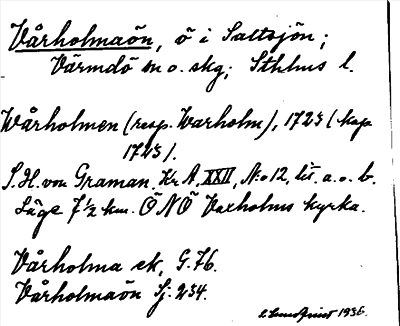 Vårholmaön, ö i Saltsjön;
Värmdö m o. skg; Sthlms l.
Wårholmen (resp. Warholm), 1723 (kop.
1723).
S.H. von Graman, Kr A, XXII, N:o 12, lit a. o. b.
Läge 7 ½ km. ÖNÖ Vaxholms kyrka.
Vårholma ek, G.76.
Vårholmaön Sj. 234.
1936.